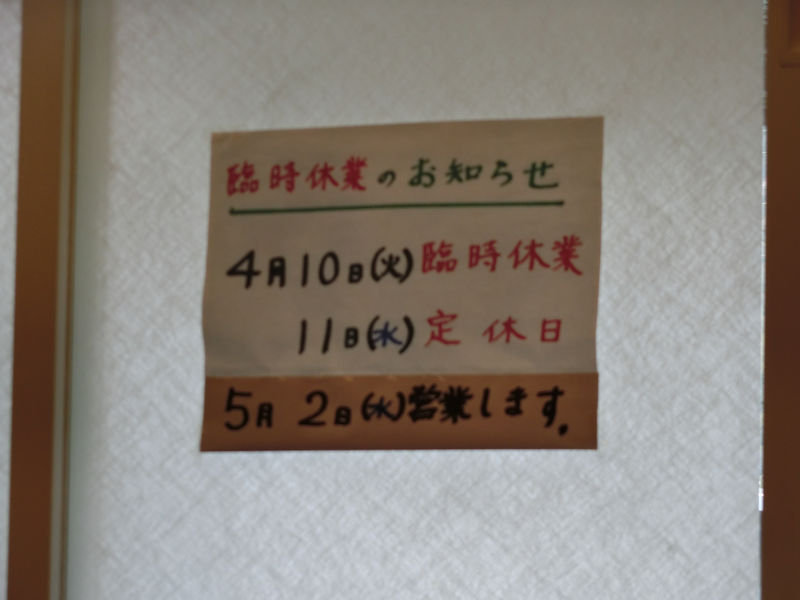 臨時休業のお知らせ
4月10日(火)臨時休業
11日(水)定休日
5月2日(水)営業します。